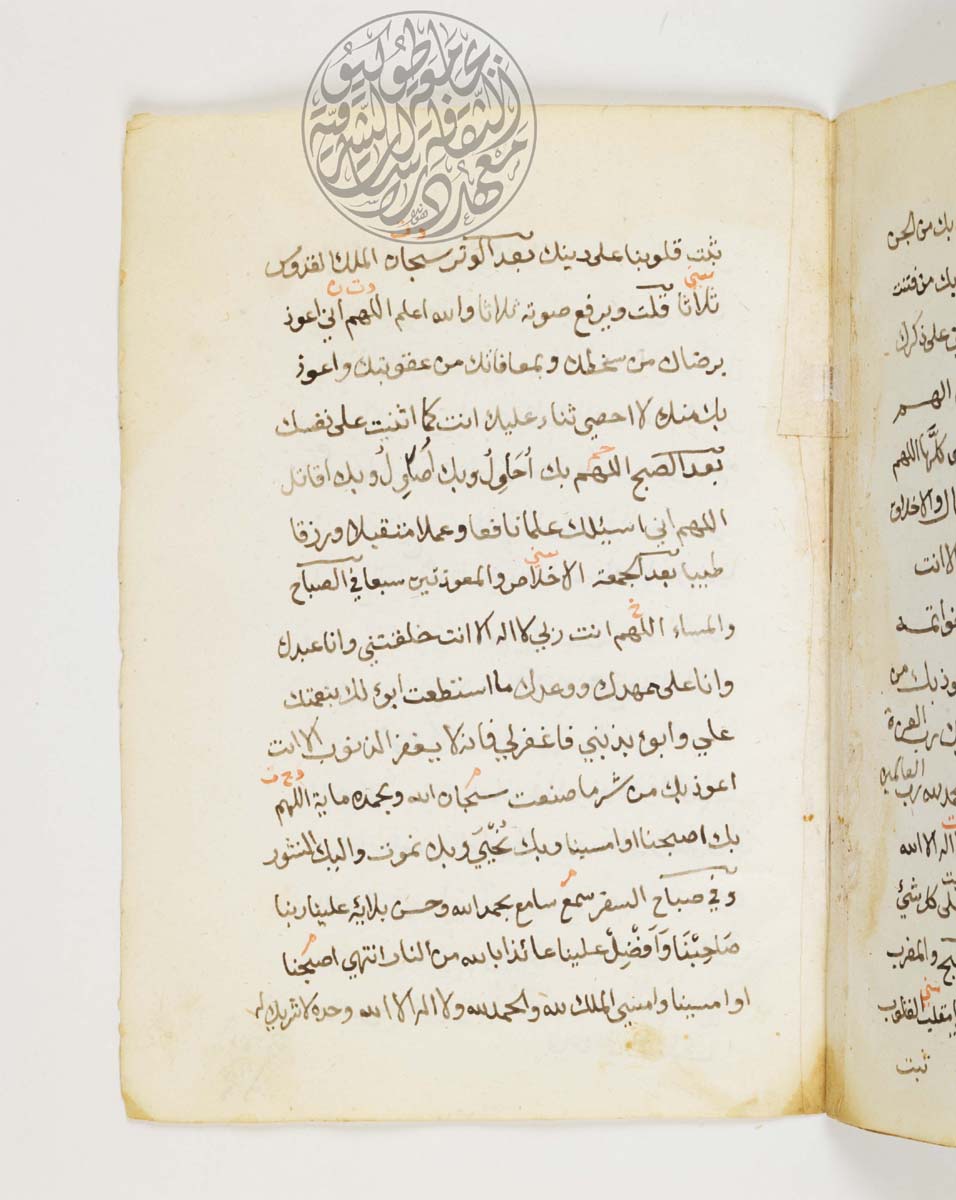 ثبت قلوبنا على دينك بعد الوتر سبحان الملك القدوس
ثلاثا قلت ويرفع صوته ثلاثا والله اعلم اللهم اني اعوذ
برضاك من سخطك وبمعافاتك من عقوبتك واعوذ
بك منك لا احصي ثناء عليك انت كما اثنيت على نفسك
بعد الصبح اللهم بك أحاول وبك أصاول وبك اقاتل
اللهم اني اسيلك علما نافعا وعملا متقبلا ورزقا
طيبا بعد الجمعة الاخلاص والمعوذتين سبعا في الصباح
والمساء اللهم انت ربي لا اله الا انت خلقتني وانا عبدك
وانا على عهدك ووعدك ما استطعت ابوء لك بنعمتك
علي وابوء بذنبي فاغفر لي فانه لا يغفر الذنوب الا انت
اعوذ بك من شر ما صنعت سبحان الله وبحمده ماية اللهم
بك اصبحنا او امسينا وبك نحيى وبك نموت واليك النشور
وفي صباح السفر سمع سامع بحمد الله وحسن بلائه علينا ربنا
صاحِبْنَا وَأَفْضِلْ علينا عائذا بالله من النار انتهى اصبحنا
او امسينا وامسى الملك لله والحمد لله ولا اله الا الله وحده لا شريك له
بك من الجن
بك من فتنة
على ذكرك
الهم
كلها اللهم
والاخلاق
الا انت
بك من
رب العزة
العالمين
الحمد لله رب
اله الا الله
على كل شئ
والمغرب
مقلب القلوب
ثبت